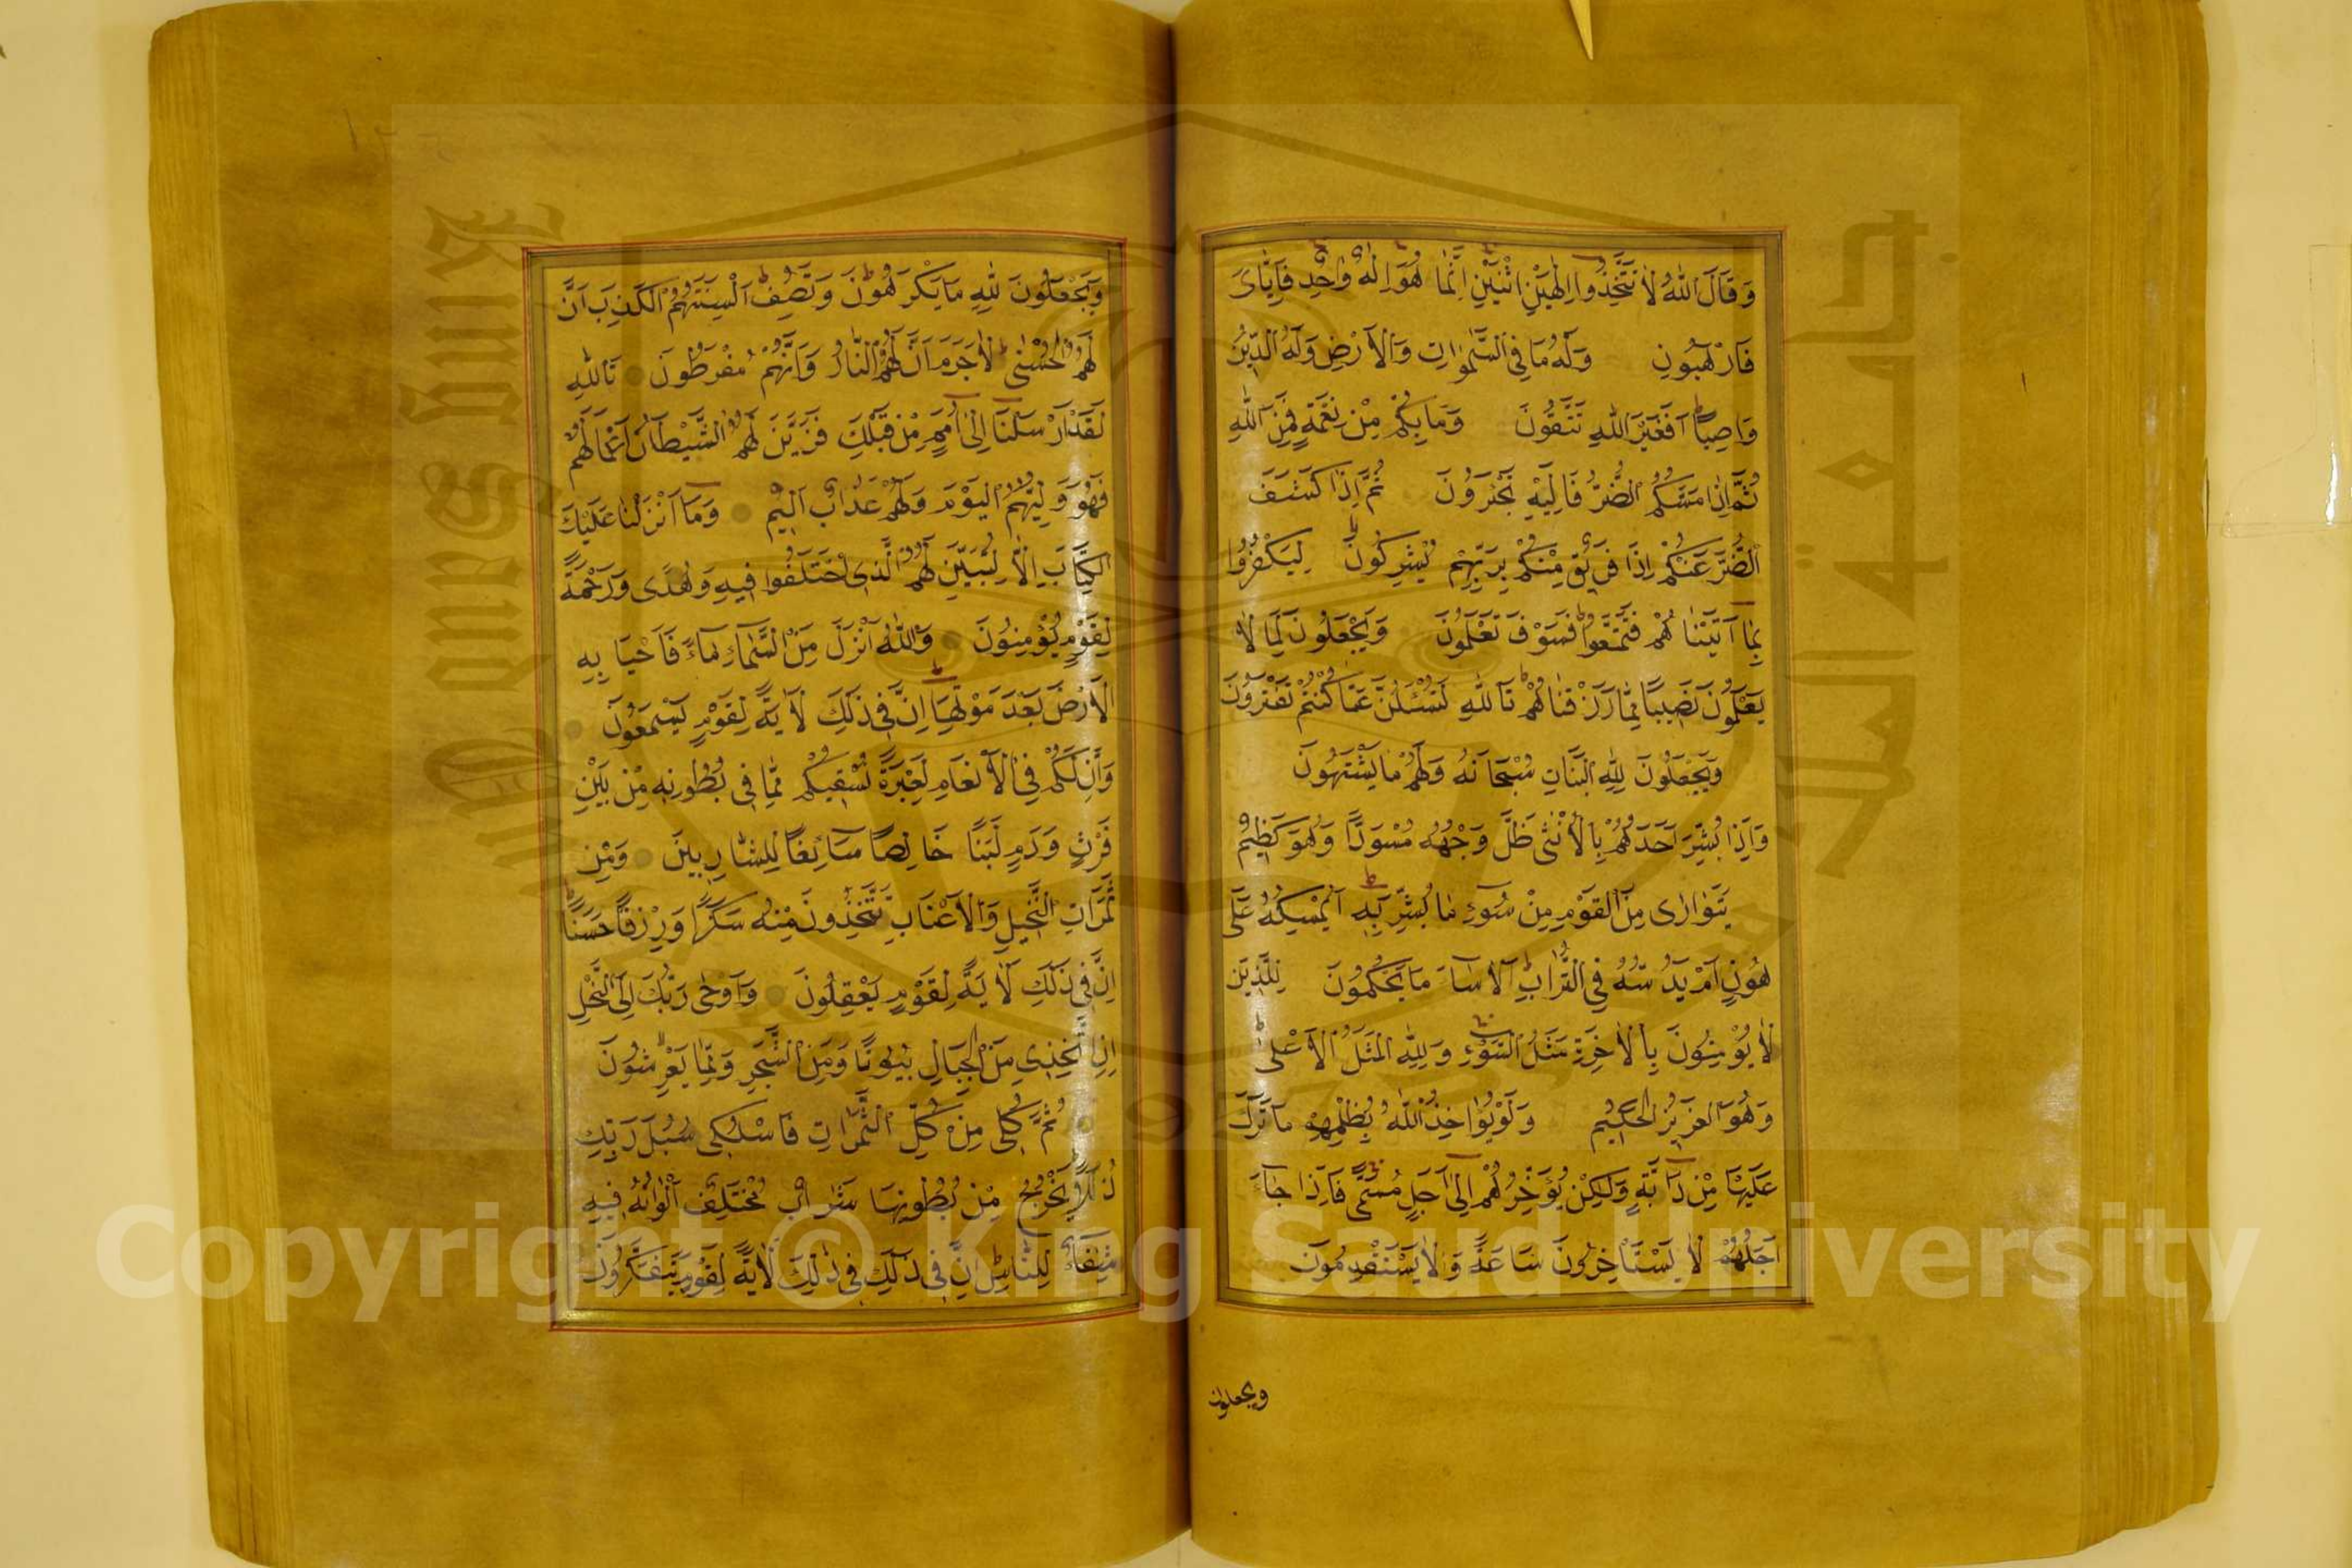 وَقَالَ اللّٰهُ لَا تَتَّخِذُوا اِلٰهَيْنِ اثْنَيْنِ اِنَّمَا هُوَ اِلٰهٌ وَاحِدٌ فَاِيَّاىَ
فَارْهَبُونِ وَلَهُ مَا فِى السَّمٰوَاتِ وَالْاَرْضِ وَلَهُ الدِّينُ
وَاصِبًا اَفَغَيْرَ اللّٰهِ تَتَّقُونَ وَمَا بِكُمْ مِنْ نِعْمَةٍ فَمِنَ اللّٰهِ
ثُمَّ اِذَا مَسَّكُمُ الضُّرُّ فَاِلَيْهِ تَجْئَرُونَ ثُمَّ اِذَا كَشَفَ
الضُّرَّ عَنْكُمْ اِذَا فَرِيقٌ مِنْكُمْ بِرَبِّهِمْ يُشْرِكُونَ لِيَكْفُرُوا
بِمَا آتَيْنَاهُمْ فَتَمَتَّعُوا فَسَوْفَ تَعْلَمُونَ وَيَجْعَلُونَ لِمَا لَا
يَعْلَمُونَ نَصِيبًا مِمَّا رَزَقْنَاهُمْ تَاللّٰهِ لَتُسْئَلُنَّ عَمَّا كُنْتُمْ تَفْتَرُونَ
وَيَجْعَلُونَ لِلّٰهِ الْبَنَاتِ سُبْحَانَهُ وَلَهُمْ مَا يَشْتَهُونَ
وَاِذَا بُشِّرَ اَحَدُهُمْ بِالْاُنْثٰى ظَلَّ وَجْهُهُ مُسْوَدًّا وَهُوَ كَظِيمٌ
يَتَوَارٰى مِنَ الْقَوْمِ مِنْ سُوءِ مَا بُشِّرَ بِهِ اَيُمْسِكُهُ عَلٰى
هُونٍ اَمْ يَدُسُّهُ فِى التُّرَابِ اَلَا سَاءَ مَا يَحْكُمُونَ لِلَّذِينَ
لَا يُؤْمِنُونَ بِالْاٰخِرَةِ مَثَلُ السَّوْءِ وَلِلّٰهِ الْمَثَلُ الْاَعْلٰى
وَهُوَ الْعَزِيزُ الْحَكِيمُ وَلَوْ يُؤَاخِذُ اللّٰهُ بِظُلْمِهِمْ مَا تَرَكَ
عَلَيْهَا مِنْ دَابَّةٍ وَلٰكِنْ يُؤَخِّرُهُمْ اِلٰى اَجَلٍ مُسَمًّى فَاِذَا جَاءَ
اَجَلُهُمْ لَا يَسْتَأْخِرُونَ سَاعَةً وَلَا يَسْتَقْدِمُونَ
ويجعلون
وَيَجْعَلُونَ لِلّٰهِ مَا يَكْرَهُونَ وَتَصِفُ اَلْسِنَتُهُمُ الْكَذِبَ اَنَّ
لَهُمُ الْحُسْنٰى لَا جَرَمَ اَنَّ لَهُمُ النَّارَ وَاَنَّهُمْ مُفْرَطُونَ تَاللّٰهِ
لَقَدْ اَرْسَلْنَا اِلٰى اُمَمٍ مِنْ قَبْلِكَ فَزَيَّنَ لَهُمُ الشَّيْطَانُ اَعْمَالَهُمْ
فَهُوَ وَلِيُّهُمُ الْيَوْمَ وَلَهُمْ عَذَابٌ اَلِيمٌ وَمَا اَنْزَلْنَا عَلَيْكَ
الْكِتَابَ اِلَّا لِتُبَيِّنَ لَهُمُ الَّذِى اخْتَلَفُوا فِيهِ وَهُدًى وَرَحْمَةً
لِقَوْمٍ يُؤْمِنُونَ وَاللّٰهُ اَنْزَلَ مِنَ السَّمَاءِ مَاءً فَاَحْيَا بِهِ
الْاَرْضَ بَعْدَ مَوْتِهَا اِنَّ فِى ذٰلِكَ لَاٰيَةً لِقَوْمٍ يَسْمَعُونَ
وَاِنَّ لَكُمْ فِى الْاَنْعَامِ لَعِبْرَةً نُسْقِيكُمْ مِمَّا فِى بُطُونِهِ مِنْ بَيْنِ
فَرْثٍ وَدَمٍ لَبَنًا خَالِصًا سَائِغًا لِلشَّارِبِينَ وَمِنْ
ثَمَرَاتِ النَّخِيلِ وَالْاَعْنَابِ تَتَّخِذُونَ مِنْهُ سَكَرًا وَرِزْقًا حَسَنًا
اِنَّ فِى ذٰلِكَ لَاٰيَةً لِقَوْمٍ يَعْقِلُونَ وَاَوْحٰى رَبُّكَ اِلَى النَّحْلِ
اَنِ اتَّخِذِى مِنَ الْجِبَالِ بُيُوتًا وَمِنَ الشَّجَرِ وَمِمَّا يَعْرِشُونَ
ثُمَّ كُلِى مِنْ كُلِّ الثَّمَرَاتِ فَاسْلُكِى سُبُلَ رَبِّكِ
ذُلُلًا يَخْرُجُ مِنْ بُطُونِهَا شَرَابٌ مُخْتَلِفٌ اَلْوَانُهُ فِيهِ
شِفَاءٌ لِلنَّاسِ اِنَّ فِى ذٰلِكَ فِى ذٰلِكَ لَاٰيَةً لِقَوْمٍ يَتَفَكَّرُونَ
Copyright © King Saud University